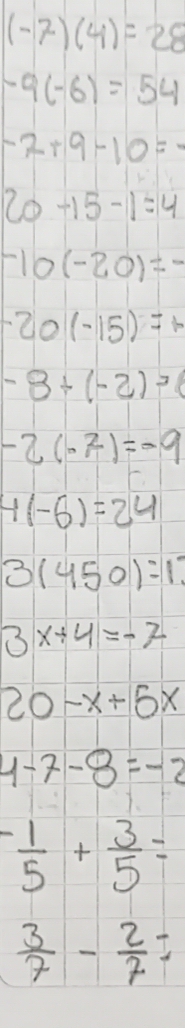 (-7)(4)=28
-9(-6)=54
-7+9-10=-
20-15-1=4
-10(-20)=-
-20(-15)=+
-8÷(-2)=
-2(-7)=-9
4(-6)=24
3(450)=1
3x+4=-7
20-x+5x
4-7-8=-2
-1/5 + 3/5 =
3/7 - 2/7 =